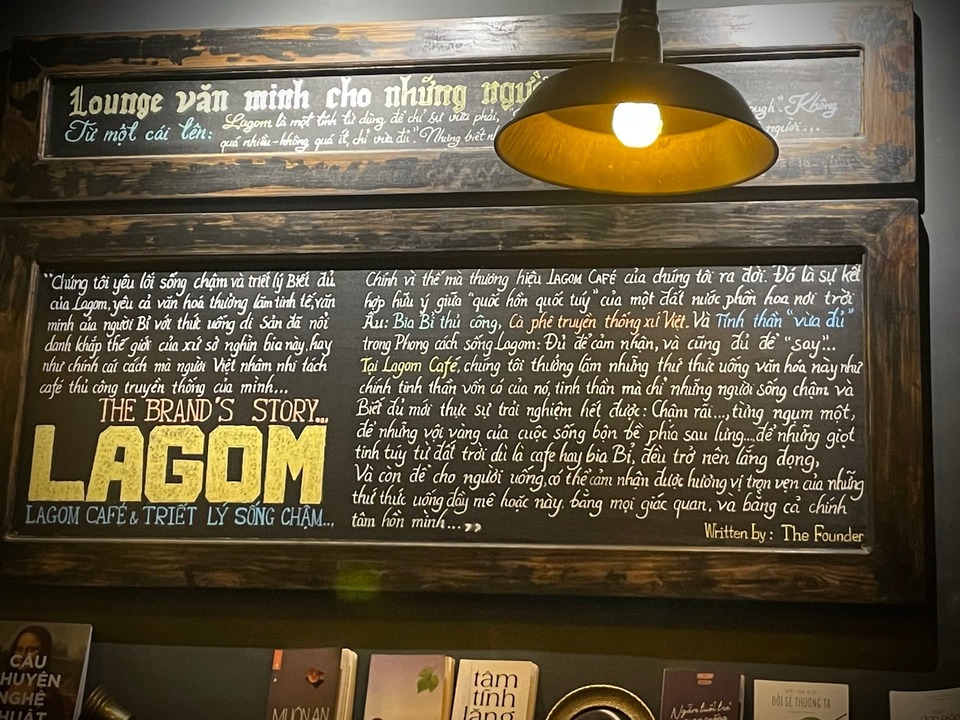 Lounge văn minh cho những người
Từ một cái tên:
Lagom là một tính từ dùng để chỉ sự vừa phải,
ough." Không
quá nhiều - không quá ít, chỉ vừa đủ." Nhưng biết
người...
"Chúng tôi yêu lối sống chậm và triết lý Biết đủ
của Lagom, yêu cả văn hoá thưởng lãm tinh tế, văn
minh của người Bỉ với thức uống di sản đã nổi
danh khắp thế giới của xứ sở nghìn bia này, hay
như chính cái cách mà người Việt nhâm nhi tách
café thủ công truyền thống của mình...
THE BRAND'S STORY...
LAGOM
LAGOM CAFÉ & TRIẾT LÝ SỐNG CHẬM...
Chính vì thế mà thương hiệu LAGOM CAFÉ của chúng tôi ra đời. Đó là sự kết
hợp hữu ý giữa "quốc hồn quốc tuý" của một đất nước phồn hoa nơi trời
Âu: Bia Bỉ thủ công, Cà phê truyền thống xứ Việt. Và Tinh thần "vừa đủ"
trong Phong cách sống Lagom: Đủ để cảm nhận, và cũng đủ để "say"...
Tại Lagom Café, chúng tôi thưởng lãm những thứ thức uống văn hóa này như
chính tinh thần vốn có của nó, tinh thần mà chỉ những người sống chậm và
Biết đủ mới thực sự trải nghiệm hết được: Chậm rãi..., từng ngụm một,
để những vội vàng của cuộc sống bộn bề phía sau lưng...,để những giọt
tinh túy từ đất trời dù là cafe hay bia Bỉ, đều trở nên lắng đọng,
Và còn để cho người uống,có thể cảm nhận được hương vị trọn vẹn của những
thứ thức uống đầy mê hoặc này. bằng mọi giác quan, và bằng cả chính
tâm hồn mình... "
Written by: The Founder
CÂU
CHUYỆN
NGHỆ
THUẬT
MUÔN AN
tâm
tĩnh
lặng
Ngẫm tuổi trẻ
ĐỜI SẼ THƯƠNG TA